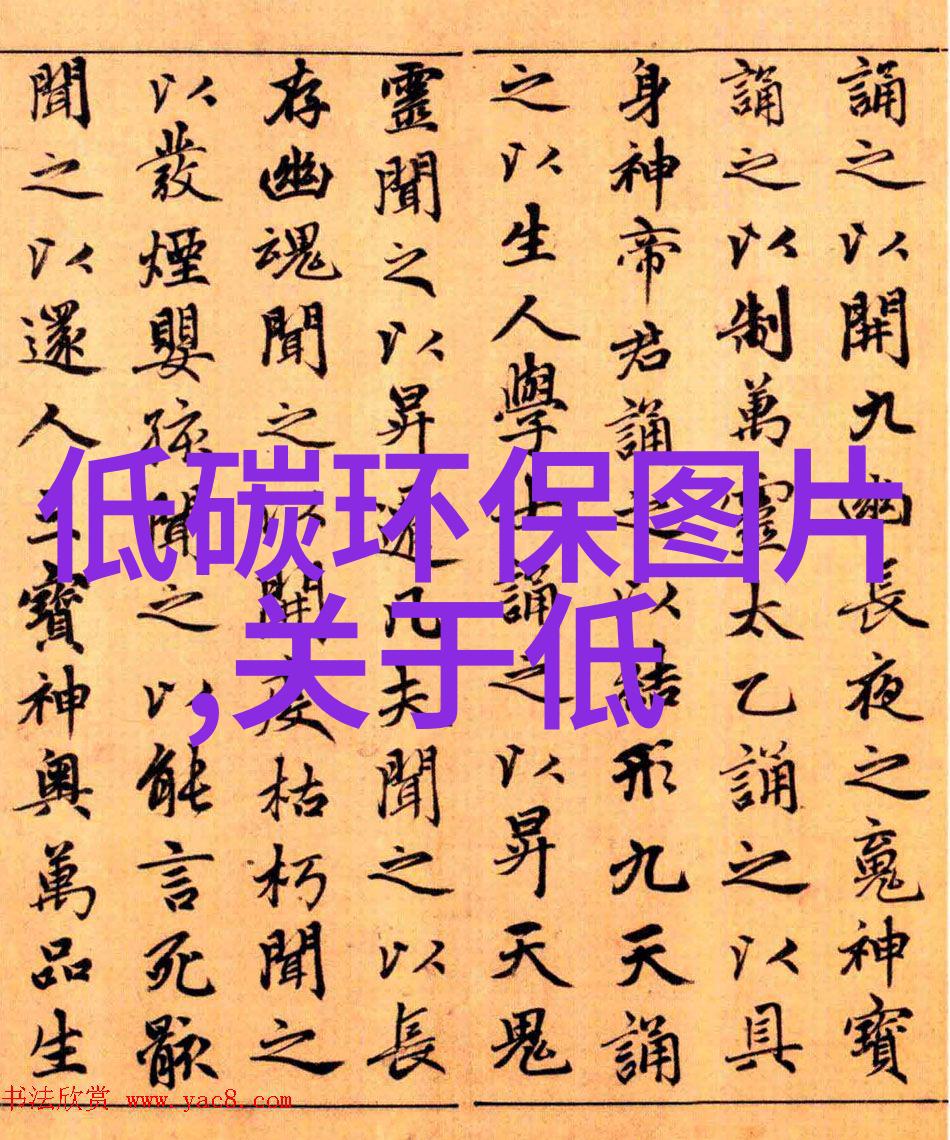 誦之以開九幽長夜之䰟神寶
誦之以制萬靈太乙誦之以具
身神帝君誦之以結形九天誦
之以生人學士誦之以昇天鬼
靈聞之以昇遷凡夫聞之以長
存幽魂聞之以開度枯朽聞之
以發煙嬰孩聞之以能言死骸
聞之以還人三寶神奧萬品生
低碳环保图片
,关于低
书法欣赏 www.yac8.com